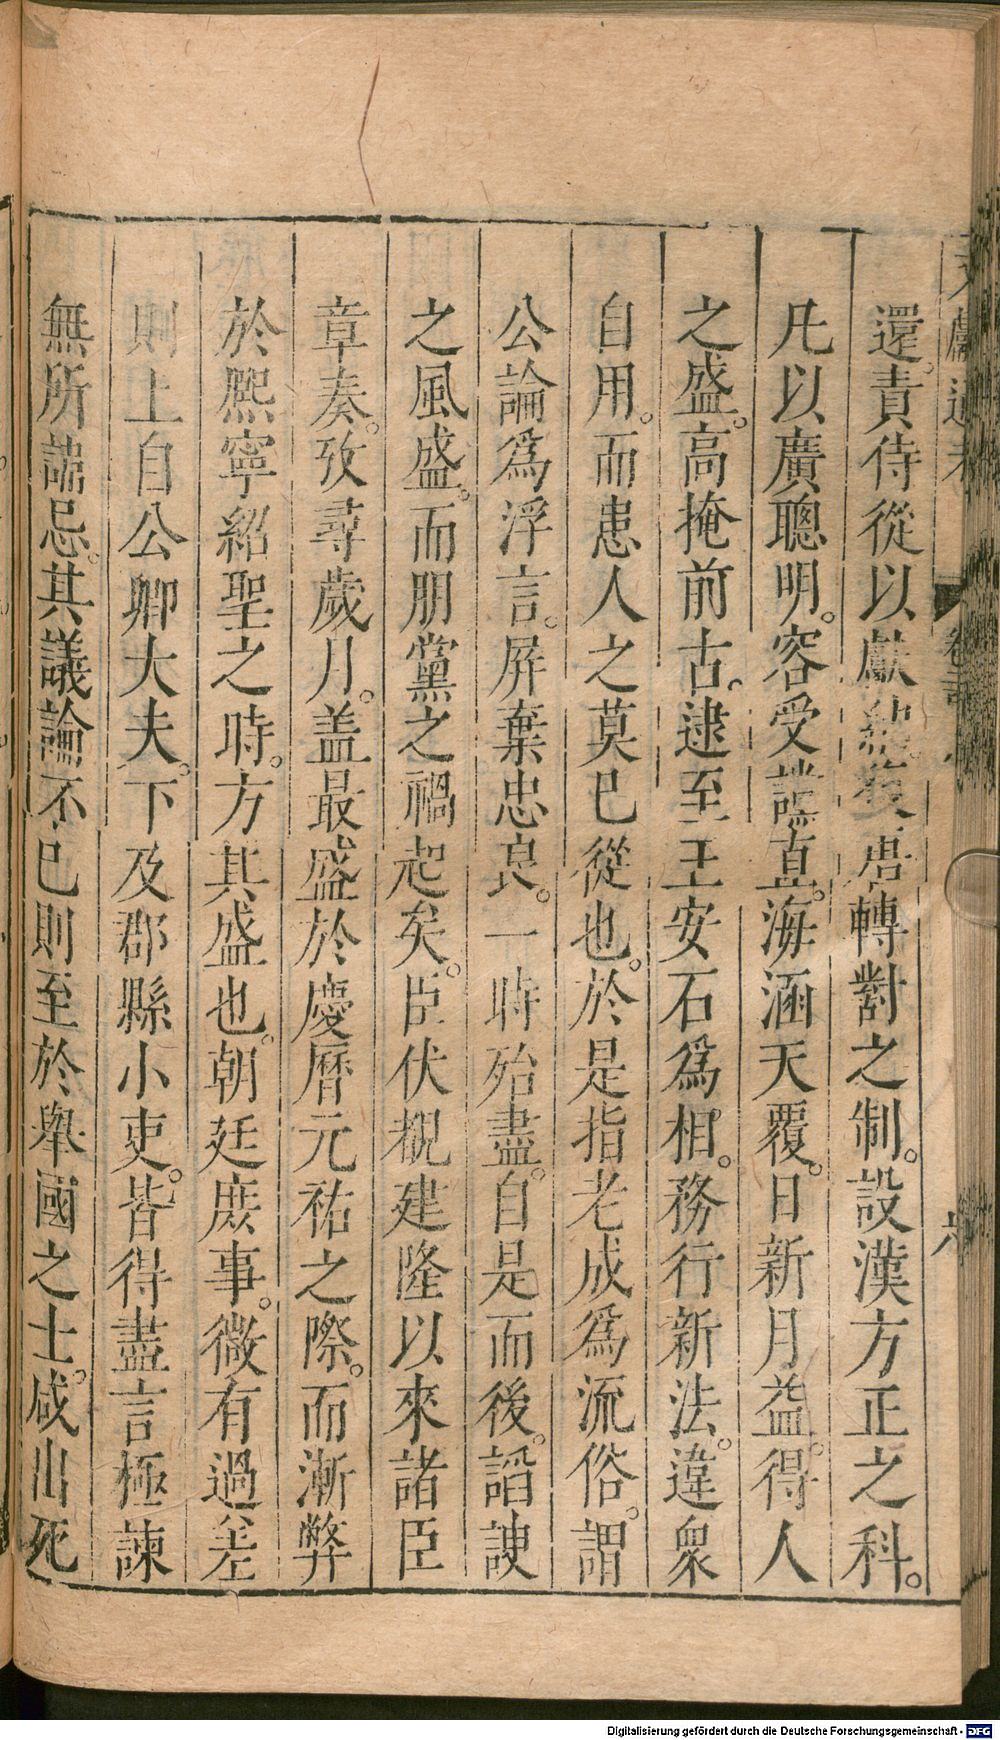 還。責侍從以獻納。復唐轉對之制。設漢方正之科。
凡以廣聰明。容受讜直。海涵天覆。日新月益。得人
之盛。高掩前古。逮至王安石爲相。務行新法。違衆
自用。而患人之莫已從也。於是指老成爲流俗。謂
公論爲浮言。屏棄忠良。一時殆盡。自是而後。謟諛
之風盛。而朋黨之禍起矣。臣伏覩建隆以來諸臣
章奏。攷尋歲月。盖最盛於慶曆元祐之際。而漸弊
於熈寧紹聖之時。方其盛也。朝廷庶事。微有過差
則上自公卿大夫。下及郡縣小吏。皆得盡言極諫
無所諱忌。其議論不已則至於舉國之士。咸出死
卷
六
Digitalisierung gefördert durch die Deutsche Forschungsgemeinschaft - DFG